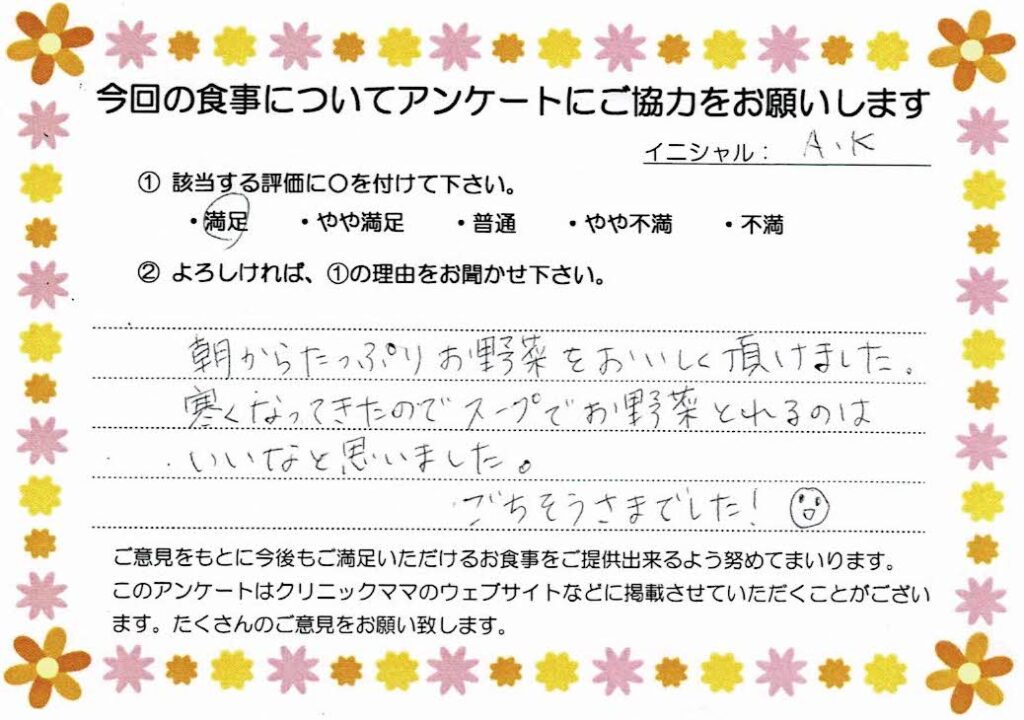 今回の食事についてアンケートにご協力をお願いします
イニシャル： A.K
① 該当する評価に〇を付けて下さい。
・満足 ・やや満足 ・普通 ・やや不満 ・不満
② よろしければ、①の理由をお聞かせ下さい。
朝からたっぷりお野菜をおいしく頂けました。
寒くなってきたのでスープでお野菜とれるのは
いいなと思いました。
ごちそうさまでした！
ご意見をもとに今後もご満足いただけるお食事をご提供出来るよう努めてまいります。
このアンケートはクリニックママのウェブサイトなどに掲載させていただくことがござい
ます。たくさんのご意見をお願い致します。